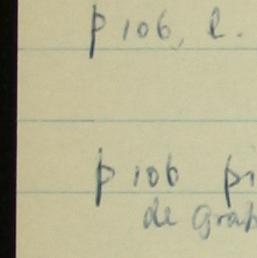 p 106, l.
p 106 pi
de Grap